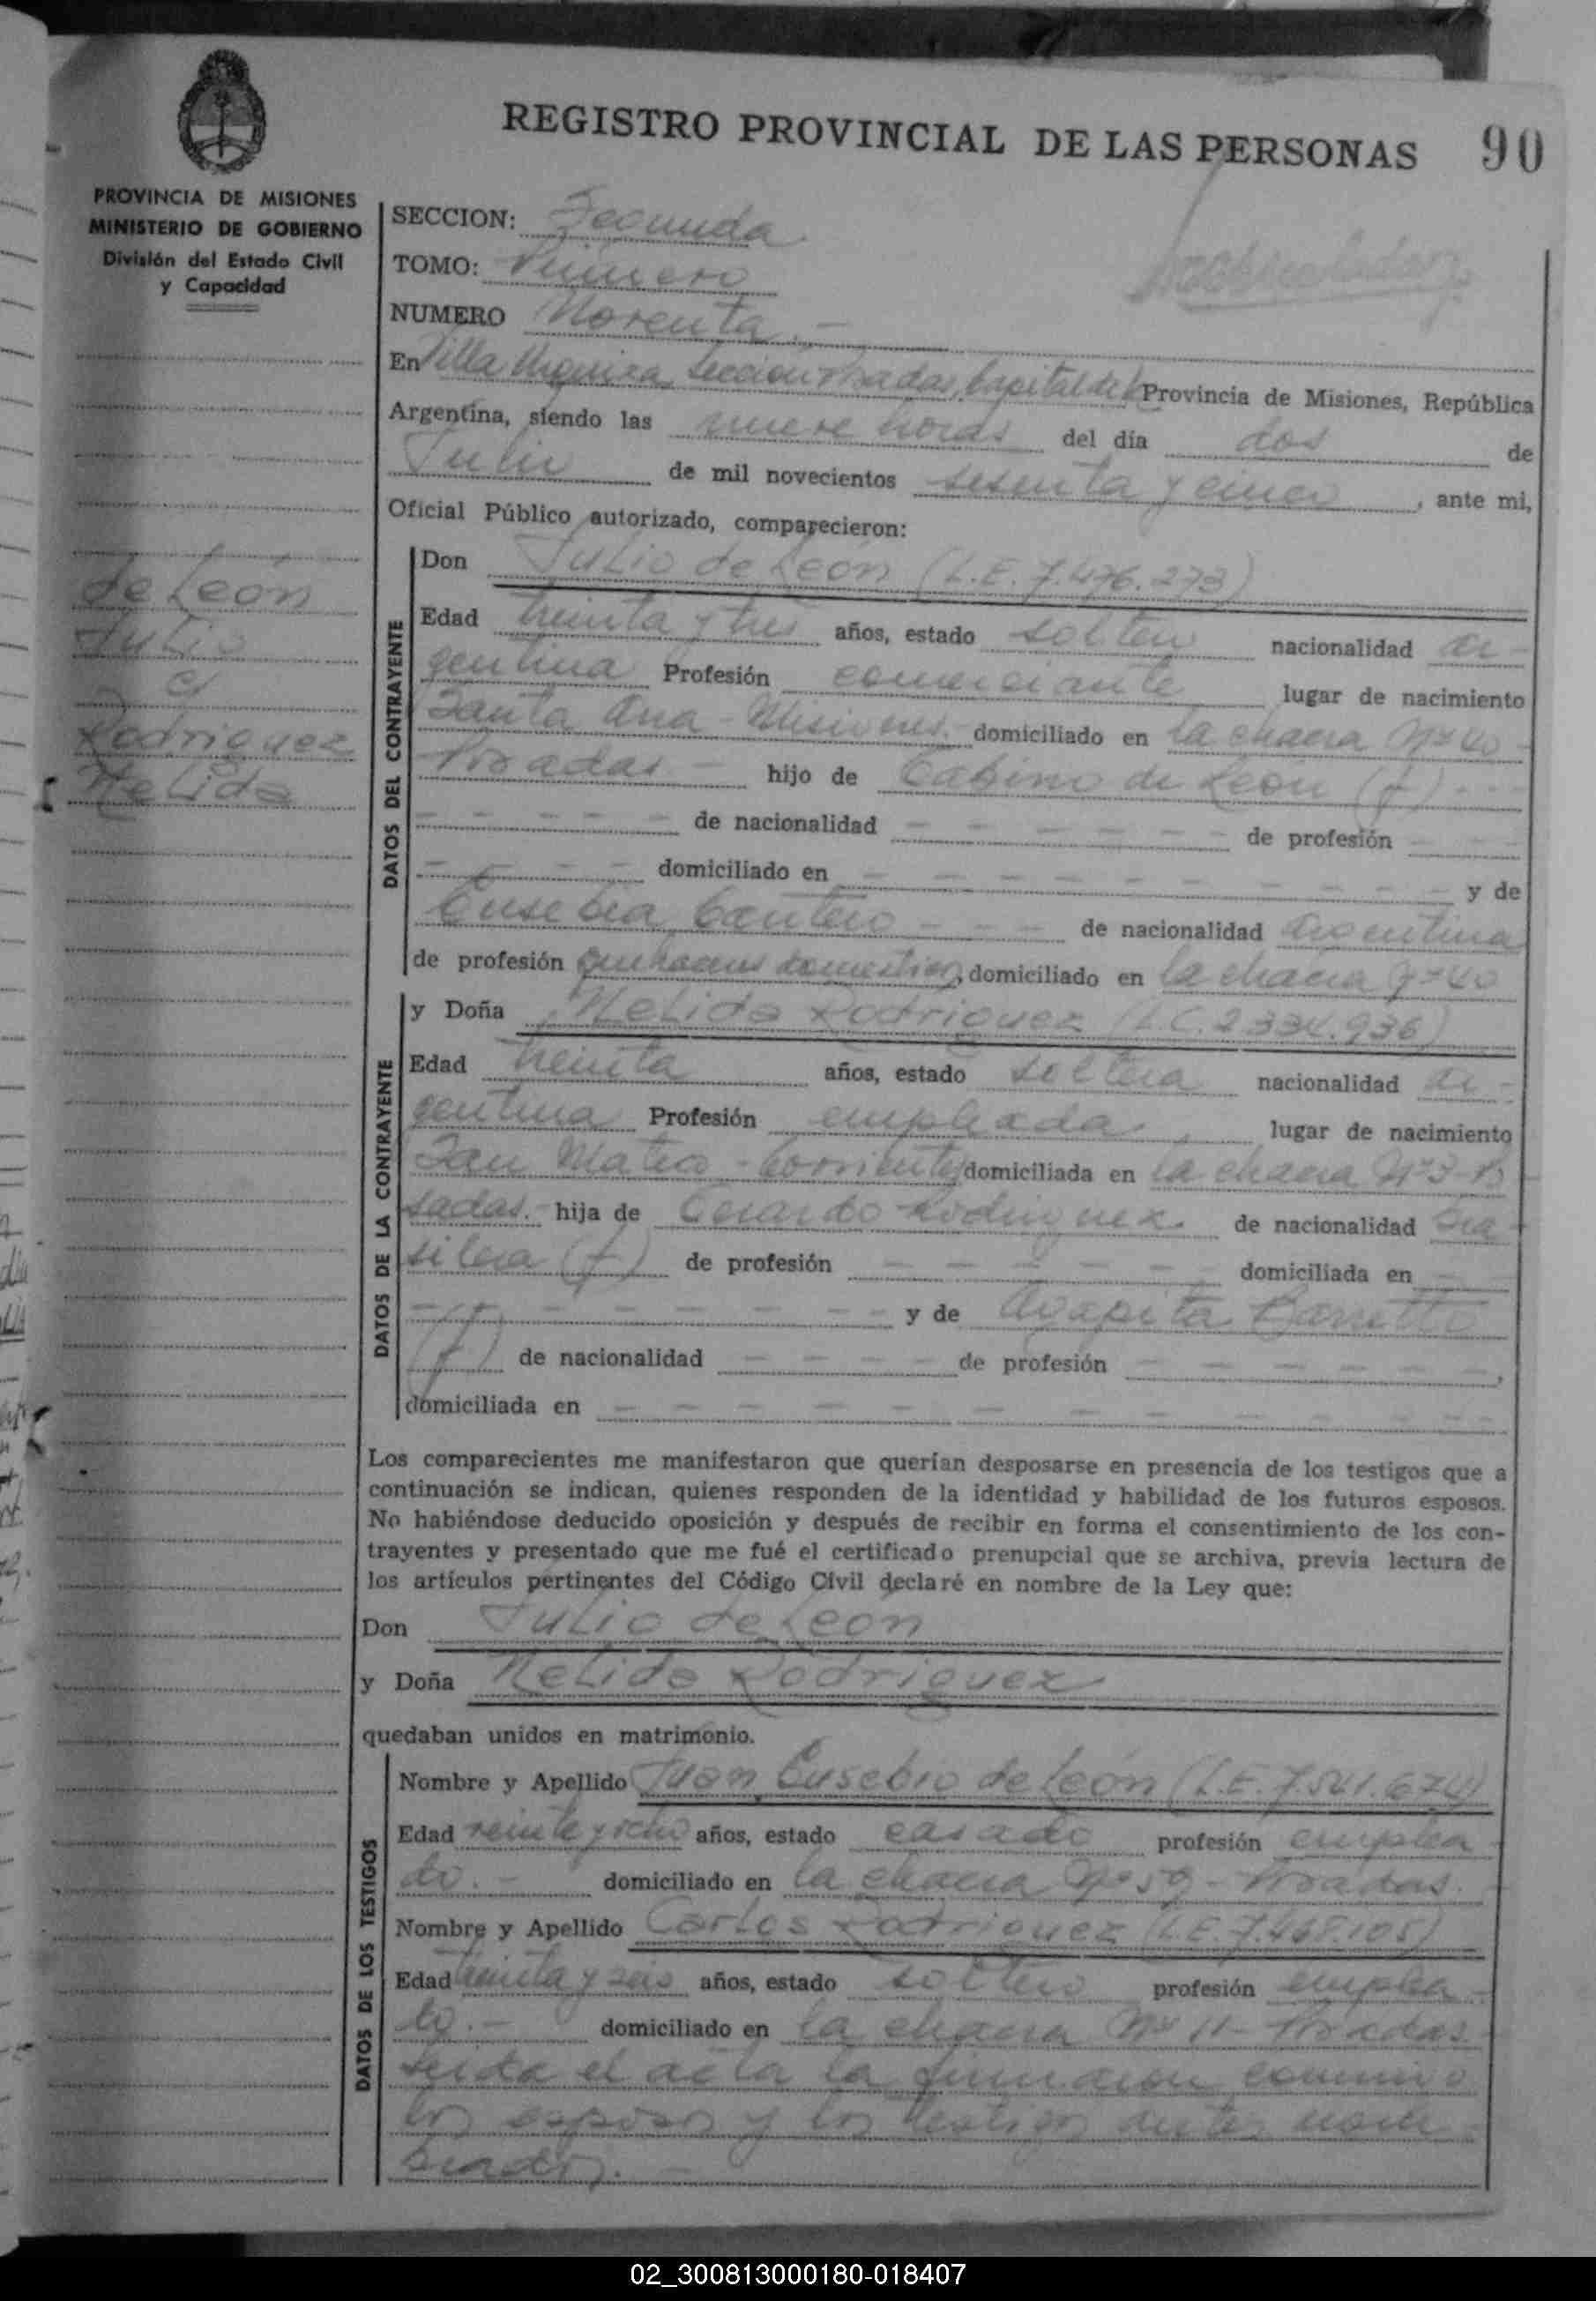 REGISTRO PROVINCIAL DE LAS PERSONAS 90
PROVINCIA DE MISIONES
MINISTERIO DE GOBIERNO
División del Estado Civil
y Capacidad
de León
Julio
c/
Rodriguez
Nelida
SECCION: Segunda
TOMO: Primero
NUMERO Noventa.-
En Villa Urquiza, Sección Posadas, Capital de la Provincia de Misiones, República
Argentina, siendo las nueve horas del día dos de
Julio de mil novecientos sesenta y cinco, ante mi,
Oficial Público autorizado, comparecieron:
DATOS DEL CONTRAYENTE
Don Julio de León (L.E. 7.476.273)
Edad treinta y tres años, estado soltero nacionalidad ar-
gentina Profesión comerciante lugar de nacimiento
Santa Ana - Misiones.- domiciliado en la chacra Nº 40 -
Posadas - hijo de Gabino de León (f) - - -
- - - - - de nacionalidad - - - - - - de profesión - - -
- - - - domiciliado en - - - - - - - - - y de
Eusebia Cantero - - - de nacionalidad argentina
de profesión quehaceres domesticos, domiciliado en la chacra Nº 40
DATOS DE LA CONTRAYENTE
y Doña Nelida Rodriguez (L.C. 2.334.936)
Edad treinta años, estado soltera nacionalidad ar-
gentina Profesión empleada, lugar de nacimiento
San Mateo - Corrientes domiciliada en la chacra Nº 3 - Po
sadas.- hija de Gerardo Rodriguez. de nacionalidad bra
silera (f) de profesión - - - - - - domiciliada en -
- - - - - - - - y de Agapita Barretto
(f) de nacionalidad - - - - de profesión - - - - - -,
domiciliada en - - - - - - - - - - - -
Los comparecientes me manifestaron que querían desposarse en presencia de los testigos que a
continuación se indican, quienes responden de la identidad y habilidad de los futuros esposos.
No habiéndose deducido oposición y después de recibir en forma el consentimiento de los con-
trayentes y presentado que me fué el certificado prenupcial que se archiva, previa lectura de
los artículos pertinentes del Código Civil declaré en nombre de la Ley que:
Don Julio de León
y Doña Nelida Rodriguez
quedaban unidos en matrimonio.
DATOS DE LOS TESTIGOS
Nombre y Apellido Juan Eusebio de León (L.E. 7.541.674)
Edad veinte y ocho años, estado casado profesión emplea
do.- domiciliado en la chacra Nº 59 - Posadas.
Nombre y Apellido Carlos Rodriguez (L.E. 7.468.105)
Edad treinta y seis años, estado soltero profesión emplea-
do.- domiciliado en la chacra Nº 11 - Posadas.-
Leida el acta la firmaron conmigo
los esposos y los testigos antes nom-
brados.-
02_300813000180-018407